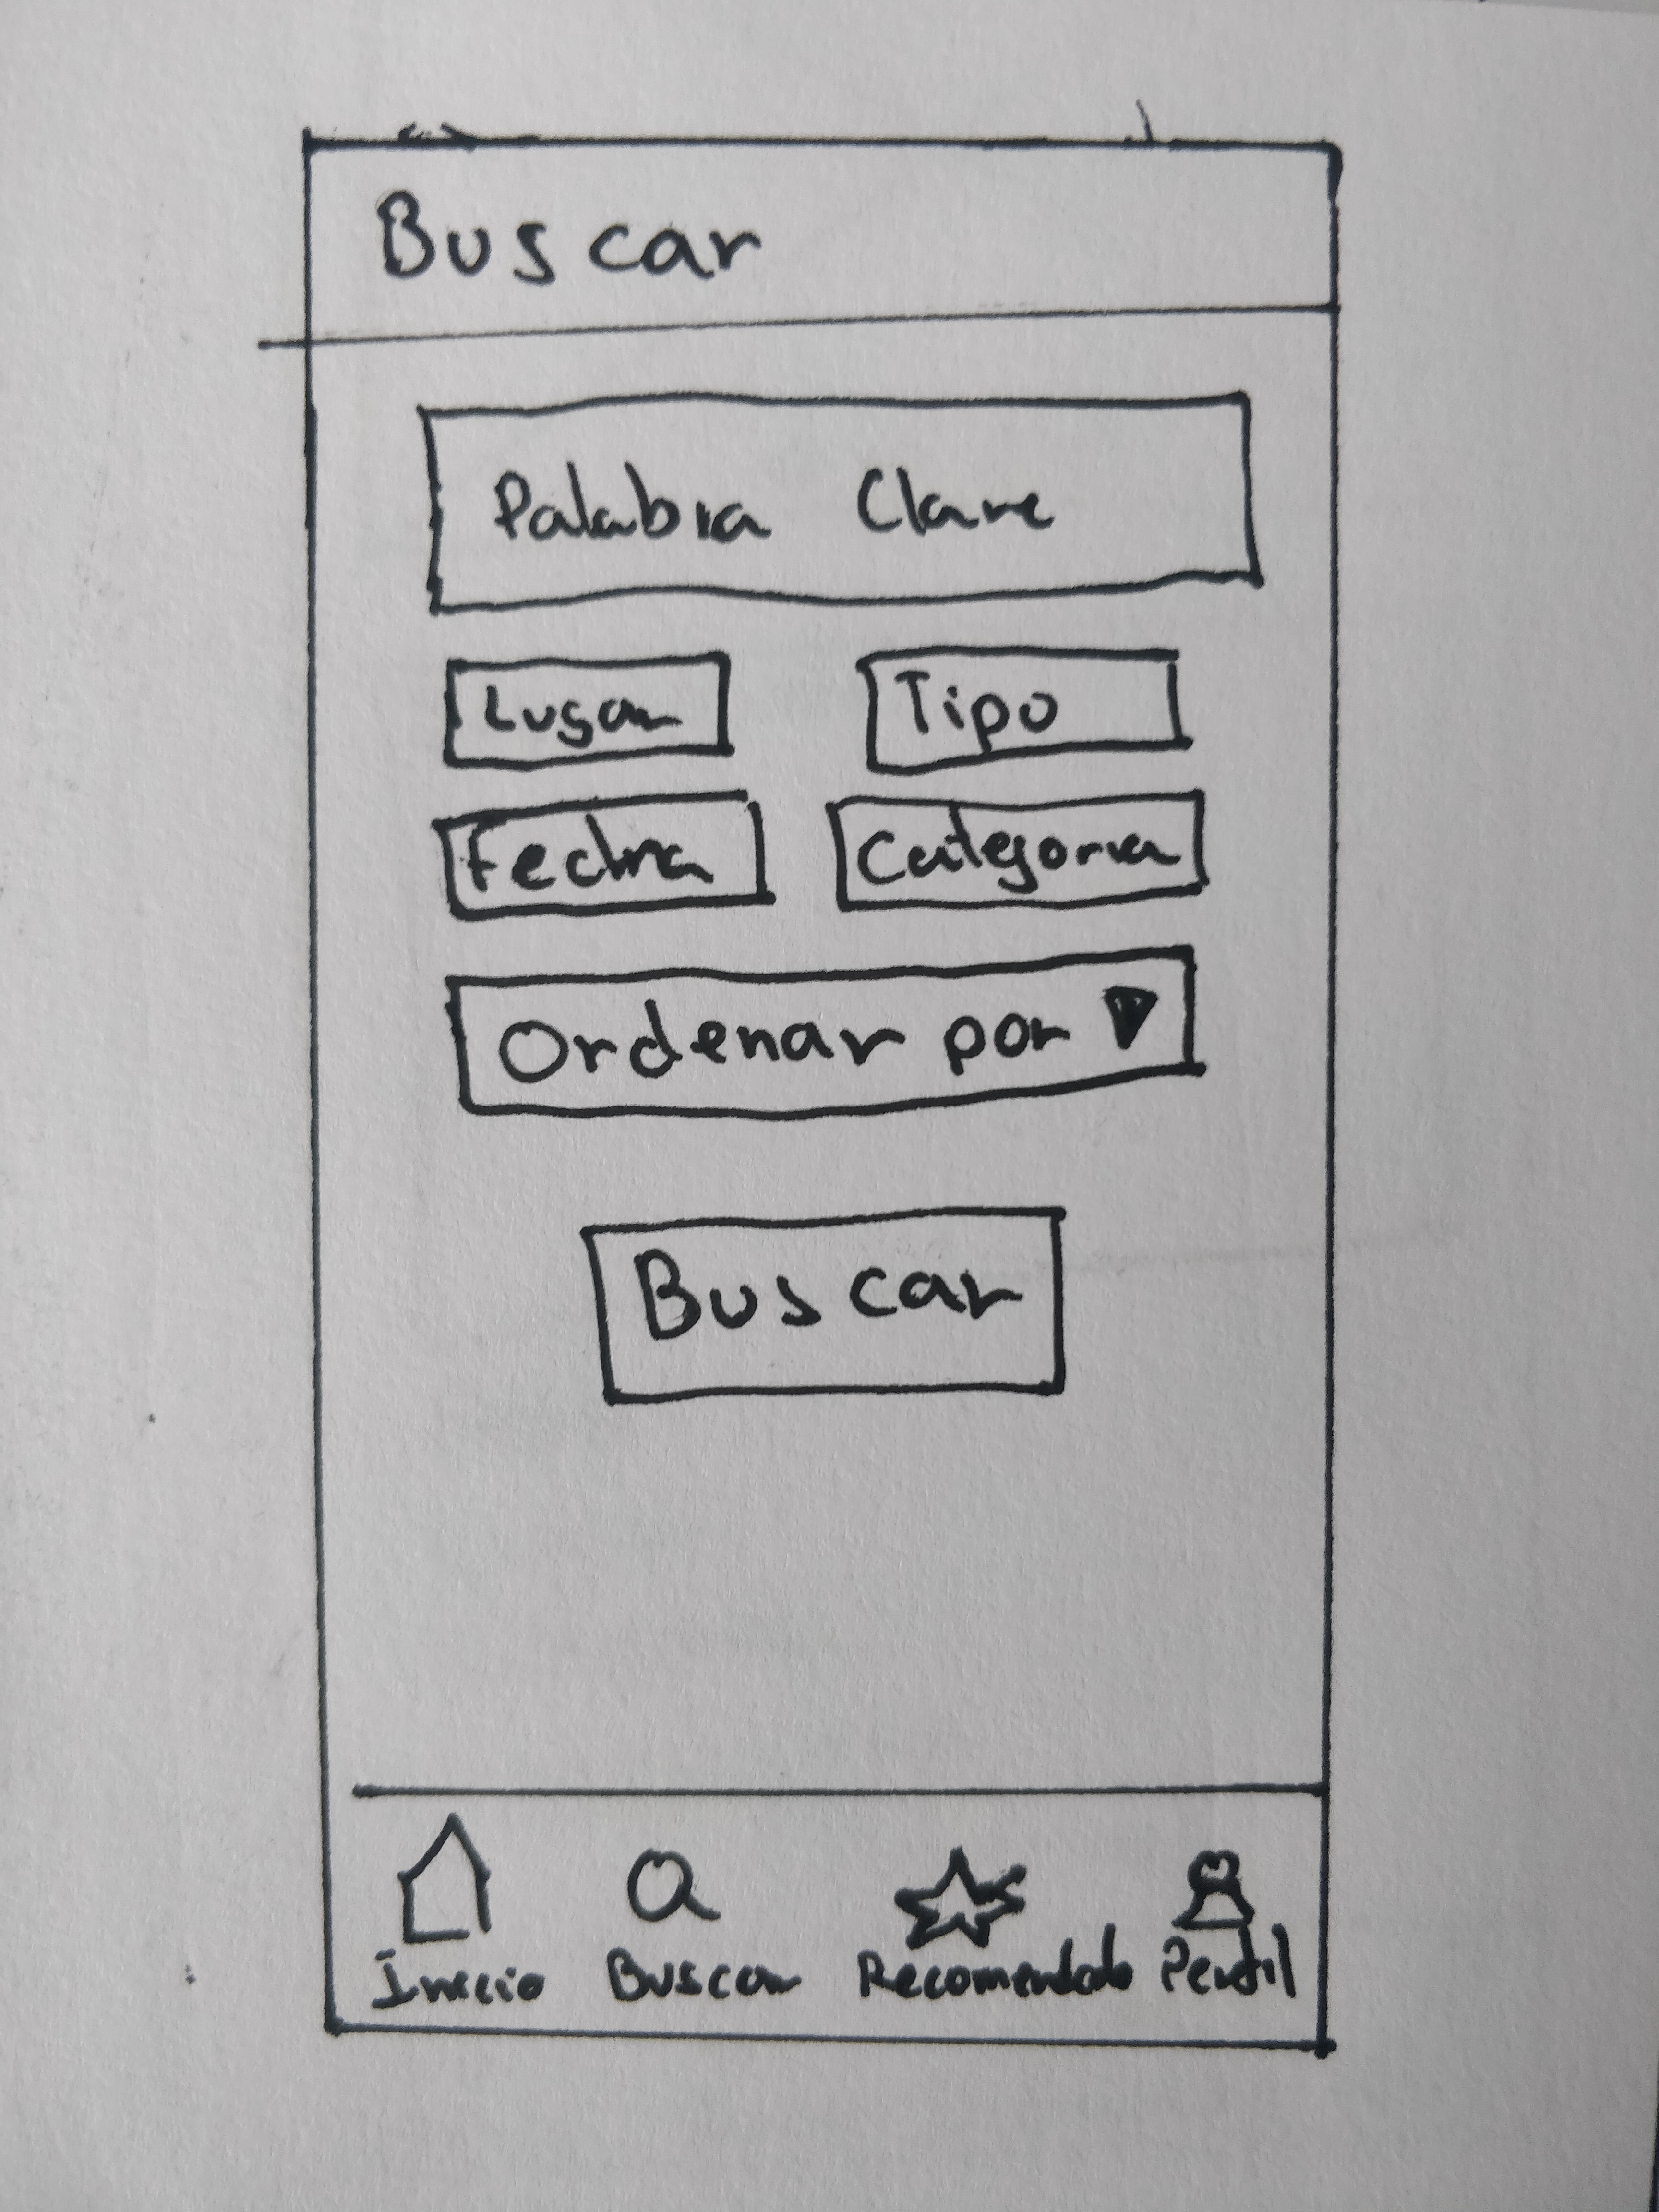 Buscar
Palabra Clave
Lugar Tipo
Fecha Categoria
Ordenar por
Buscar
Inicio Buscar Recomendado Perfil